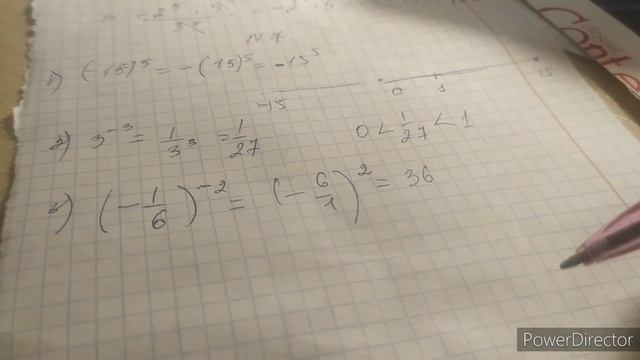 N 7
1) (-15)^5 = -(15)^5 = -15^5
-15 0 1 15
2) 3^-3 = 1/3^3 = 1/27 0 < 1/27 < 1
3) (-1/6)^-2 = (-6/1)^2 = 36
PowerDirector